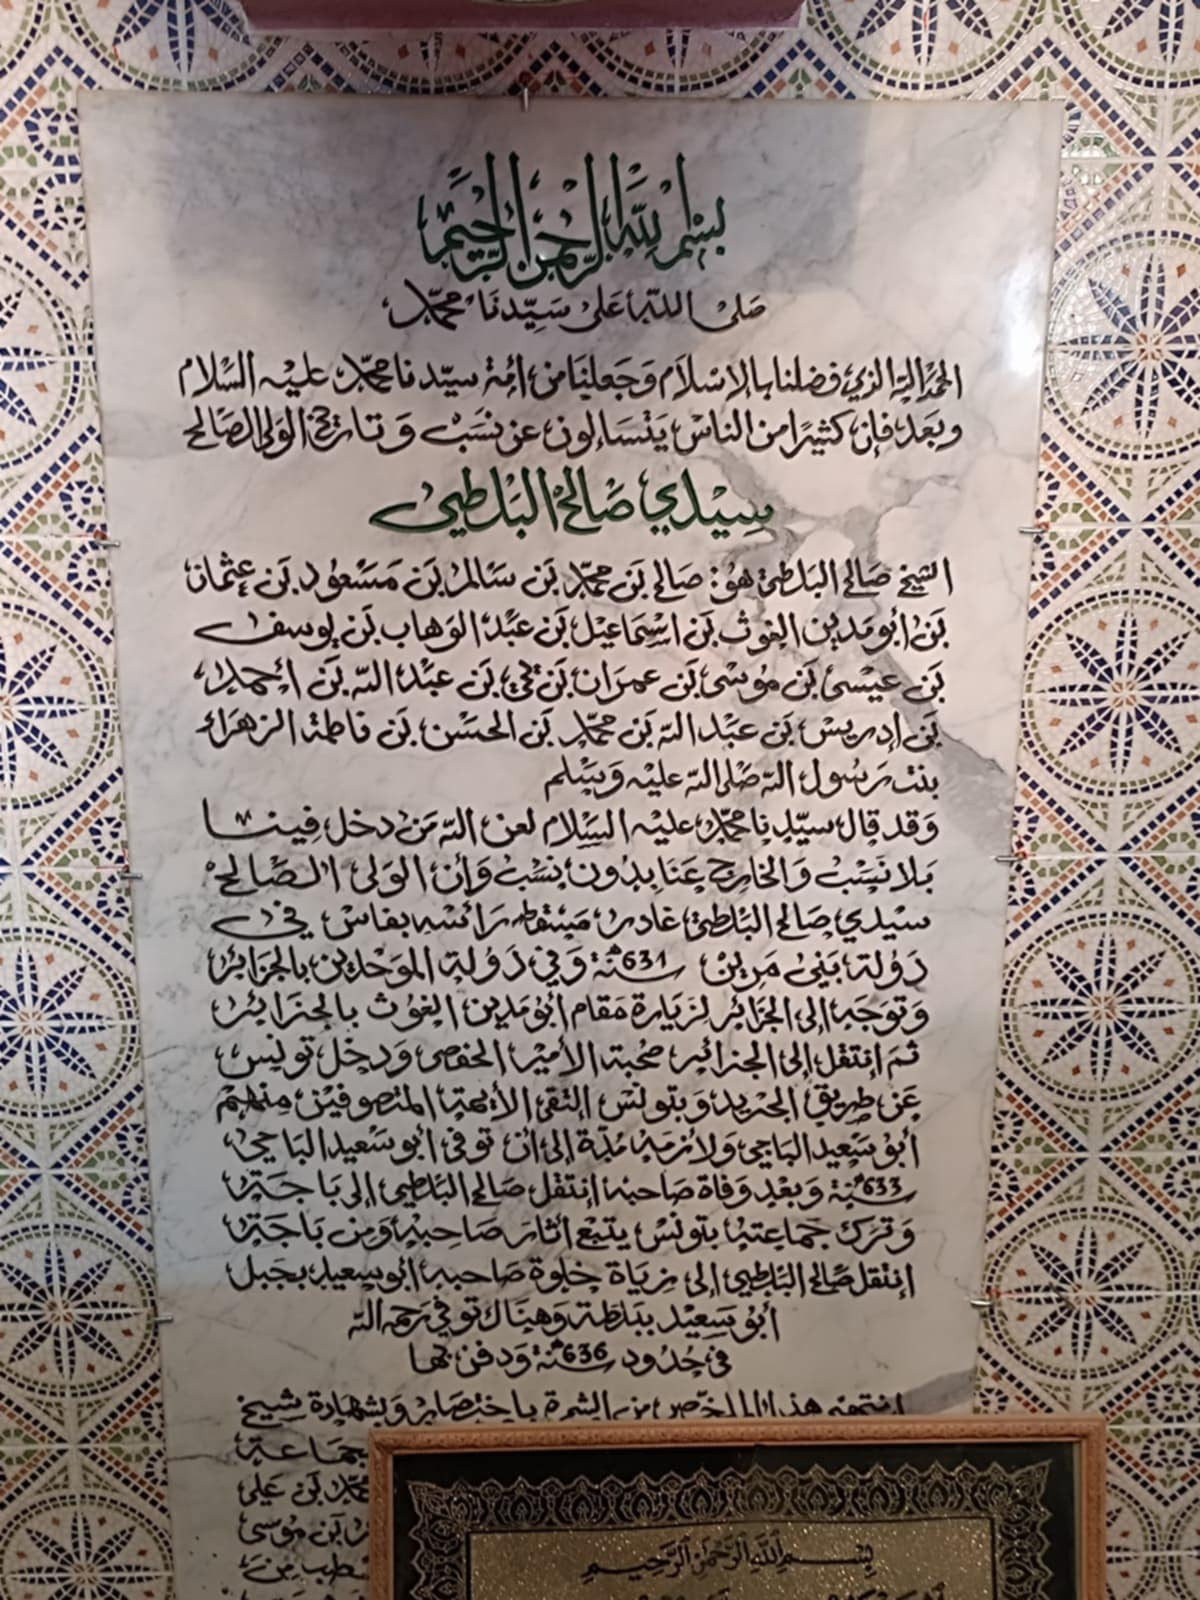 بسم الله الرحمن الرحيم
صلى الله على سيدنا محمد
الحمد الله الذي فضلنا بالإسلام وجعلنا من أمة سيدنا محمد عليه السلام
وبعد فإن كثيرا من الناس يتساءلون عن نسب وتاريخ الولي الصالح
سيدي صالح البلطي
الشيخ صالح البلطي هو: صالح بن محمد بن سالم بن مسعود بن عثمان
بن أبو مدين الغوث بن اسماعيل بن عبد الوهاب بن يوسف
بن عيسى بن موسى بن عمران بن يحي بن عبد الله بن أحمد
بن إدريس بن عبد الله بن محمد بن الحسن بن فاطمة الزهراء
بنت رسول الله صلى الله عليه وسلم
وقد قال سيدنا محمد عليه السلام لعن الله من دخل فينا
بلا نسب والخارج عنا بدون نسب وأن الولي الصالح
سيدي صالح البلطي غادر مسقط رائسه بفاس في
دولة بني مرين سنة 631 وفي دولة الموحدين بالجزائر
وتوجه إلى الجزائر لزيارة مقام أبو مدين الغوث بالجزائر
ثم إنتقل إلى الجزائر صحبة الأمير الحفصي ودخل تونس
عن طريق الجريد وبتونس التقى الأيمة المتصوفين منهم
أبو سعيد الباجي ولازمه مدة إلى أن توفي أبو سعيد الباجي
سنة 633 وبعد وفاة صاحبه إنتقل صالح البلطي إلى باجة
وترك جماعته بتونس يتبع أثار صاحبه ومن باجة
إنتقل صالح البلطي إلى زياة خلوة صاحبه أبو سعيد بجبل
أبو سعيد ببلطة وهناك توفي رحمه الله
في حدود سنة 636 ودفن بها
إنتهى هذا الملخص من الشجرة باختصار وبشهادة شيخ
جماعة
محمد بن علي
بن موسى
بسم الله الرحمن الرحيم